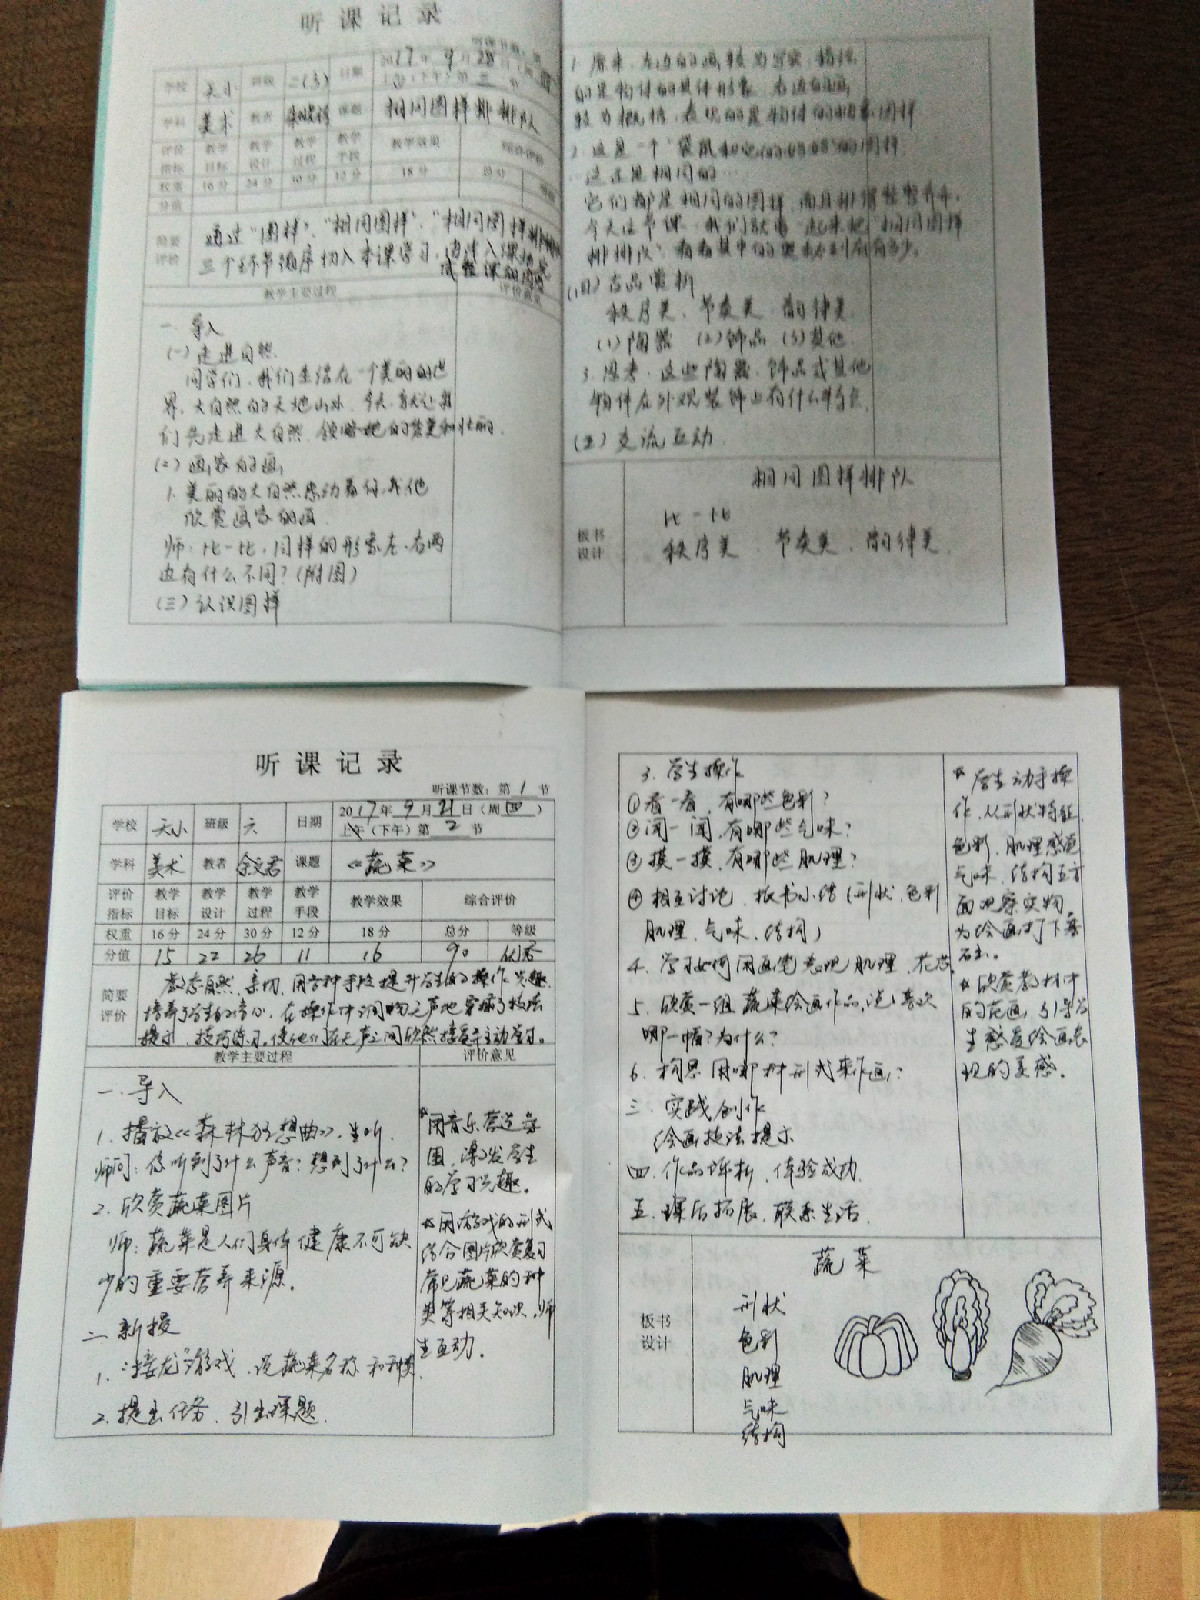 听课记录
听课节数：第 节
学校 天小 班级 二(3) 日期 2017年9月28
(下午) 第三节
学科 美术 教者 课题 相同图样排排队
评价指标 教学目标 教学设计 教学过程 教学手段 教学效果 综合评价
权重 16分 24分 30分 12分 18分 总分 等级
分值
简要评价 通过"图样"、"相同图样"、"相同图样排排队"
三个环节循序切入本课学习，由浅入深
教学主要过程 评价意见
一、导入
(一)走进自然
同学们，我们生活在一个美丽的世
界，大自然的天地山水，今天，就让我
们先走进大自然，领略她的美和壮丽。
(二)画家的画
1. 美丽的大自然感动着你、我、他
欣赏画家的画
师：比一比，同样的形象左、右两
边有什么不同？(附图)
(三)认识图样
1. 原来，左边的画较为写实，描绘
的是物体的具体形象，右边的画
较为概括，表现的是物体的图样
2. 这是一个"袋鼠和它的妈妈"的图样
这还是相同的…
它们都是相同的图样，而且排得整整齐齐。
今天这节课，我们就要一起来把"相同图样
排排队"，看看其中的奥妙到底有多少。
(四)古品赏析
秩序美、节奏美、韵律美
(1)陶器 (2)饰品 (3)其他
3. 思考：这些陶器、饰品或其他
物件在外观装饰上有什么特点
(五)交流互动
板书设计
相同图样排队
比一比
秩序美、节奏美、韵律美
听课记录
听课节数：第1节
学校 天小 班级 六 日期 2017年9月21日(周四)
上午(下午)第2节
学科 美术 教者 课题 《蔬菜》
评价指标 教学目标 教学设计 教学过程 教学手段 教学效果 综合评价
权重 16分 24分 30分 12分 18分 总分 等级
分值 15 22 26 11 16 90 优秀
简要评价 教态自然、亲切，用多种手段提升学生的操作兴趣，
培养了学生的信心，在操作中润物无声地穿插了技法
提示、技巧练习，使他们在无声之间欣然接受并主动学习。
教学主要过程 评价意见
一、导入
1. 播放《森林狂想曲》，生听。
师问：你听到了什么声音？想到了什么？
2. 欣赏蔬菜图片
师：蔬菜是人们身体健康不可缺
少的重要营养来源。
二、新授
1. "接龙"游戏，说蔬菜名称和种类
2. 提出任务，引出课题。
*用音乐营造氛
围，激发学生
的学习兴趣。
*用游戏的形式
结合图片欣赏复习
常见蔬菜的种
类等相关知识，师
生互动。
3. 学生操作
①看一看，有哪些色彩？
②闻一闻，有哪些气味？
③摸一摸，有哪些肌理？
④相互讨论，板书小结(形状、色彩
肌理、气味、结构)
4. 学习如何用画笔表现肌理、
5. 欣赏一组蔬菜绘画作品，说喜欢
哪一幅？为什么？
6. 构思 用哪种形式来作画？
三、实践创作
绘画技法提示
四、作品评析，体验成功
五、课后拓展，联系生活
*学生动手操
作，从形状特征
色彩、肌理感色
气味、结构五方
面观察实物，
为绘画打下基
石出。
*欣赏教材中
的范画，引导学
生感受绘画表
现的美感。
板书设计
蔬菜
形状
色彩
肌理
气味
结构